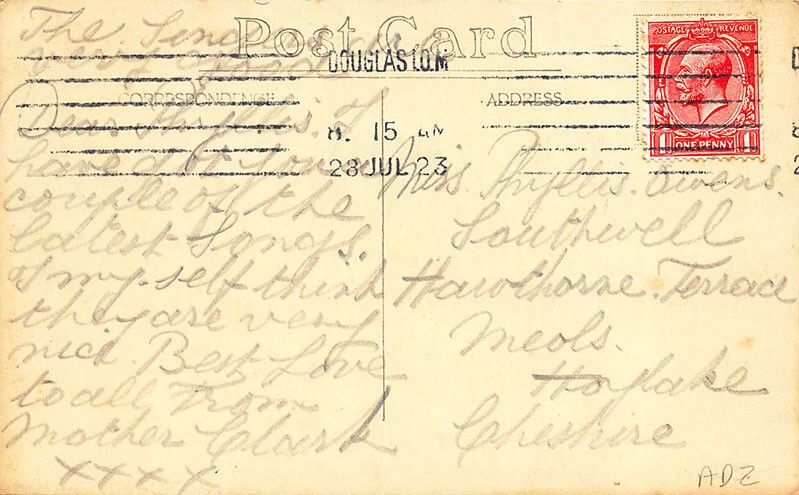 Post Card
The
DOUGLAS I.O.M
8. 15 AM
28 JUL 23
POSTAGE REVENUE
1 ONE PENNY 1
CORRESPONDENCE
Dear Phyllis. I
have
couple of the
latest Songs.
I my self think
they are very
nice. Best Love
to all From
Mother Clark
x x x x
ADDRESS
Miss. Phyllis. Owens.
Southwell
Hawthorne. Terrace
Meols.
Hoylake
Cheshire
ADZ